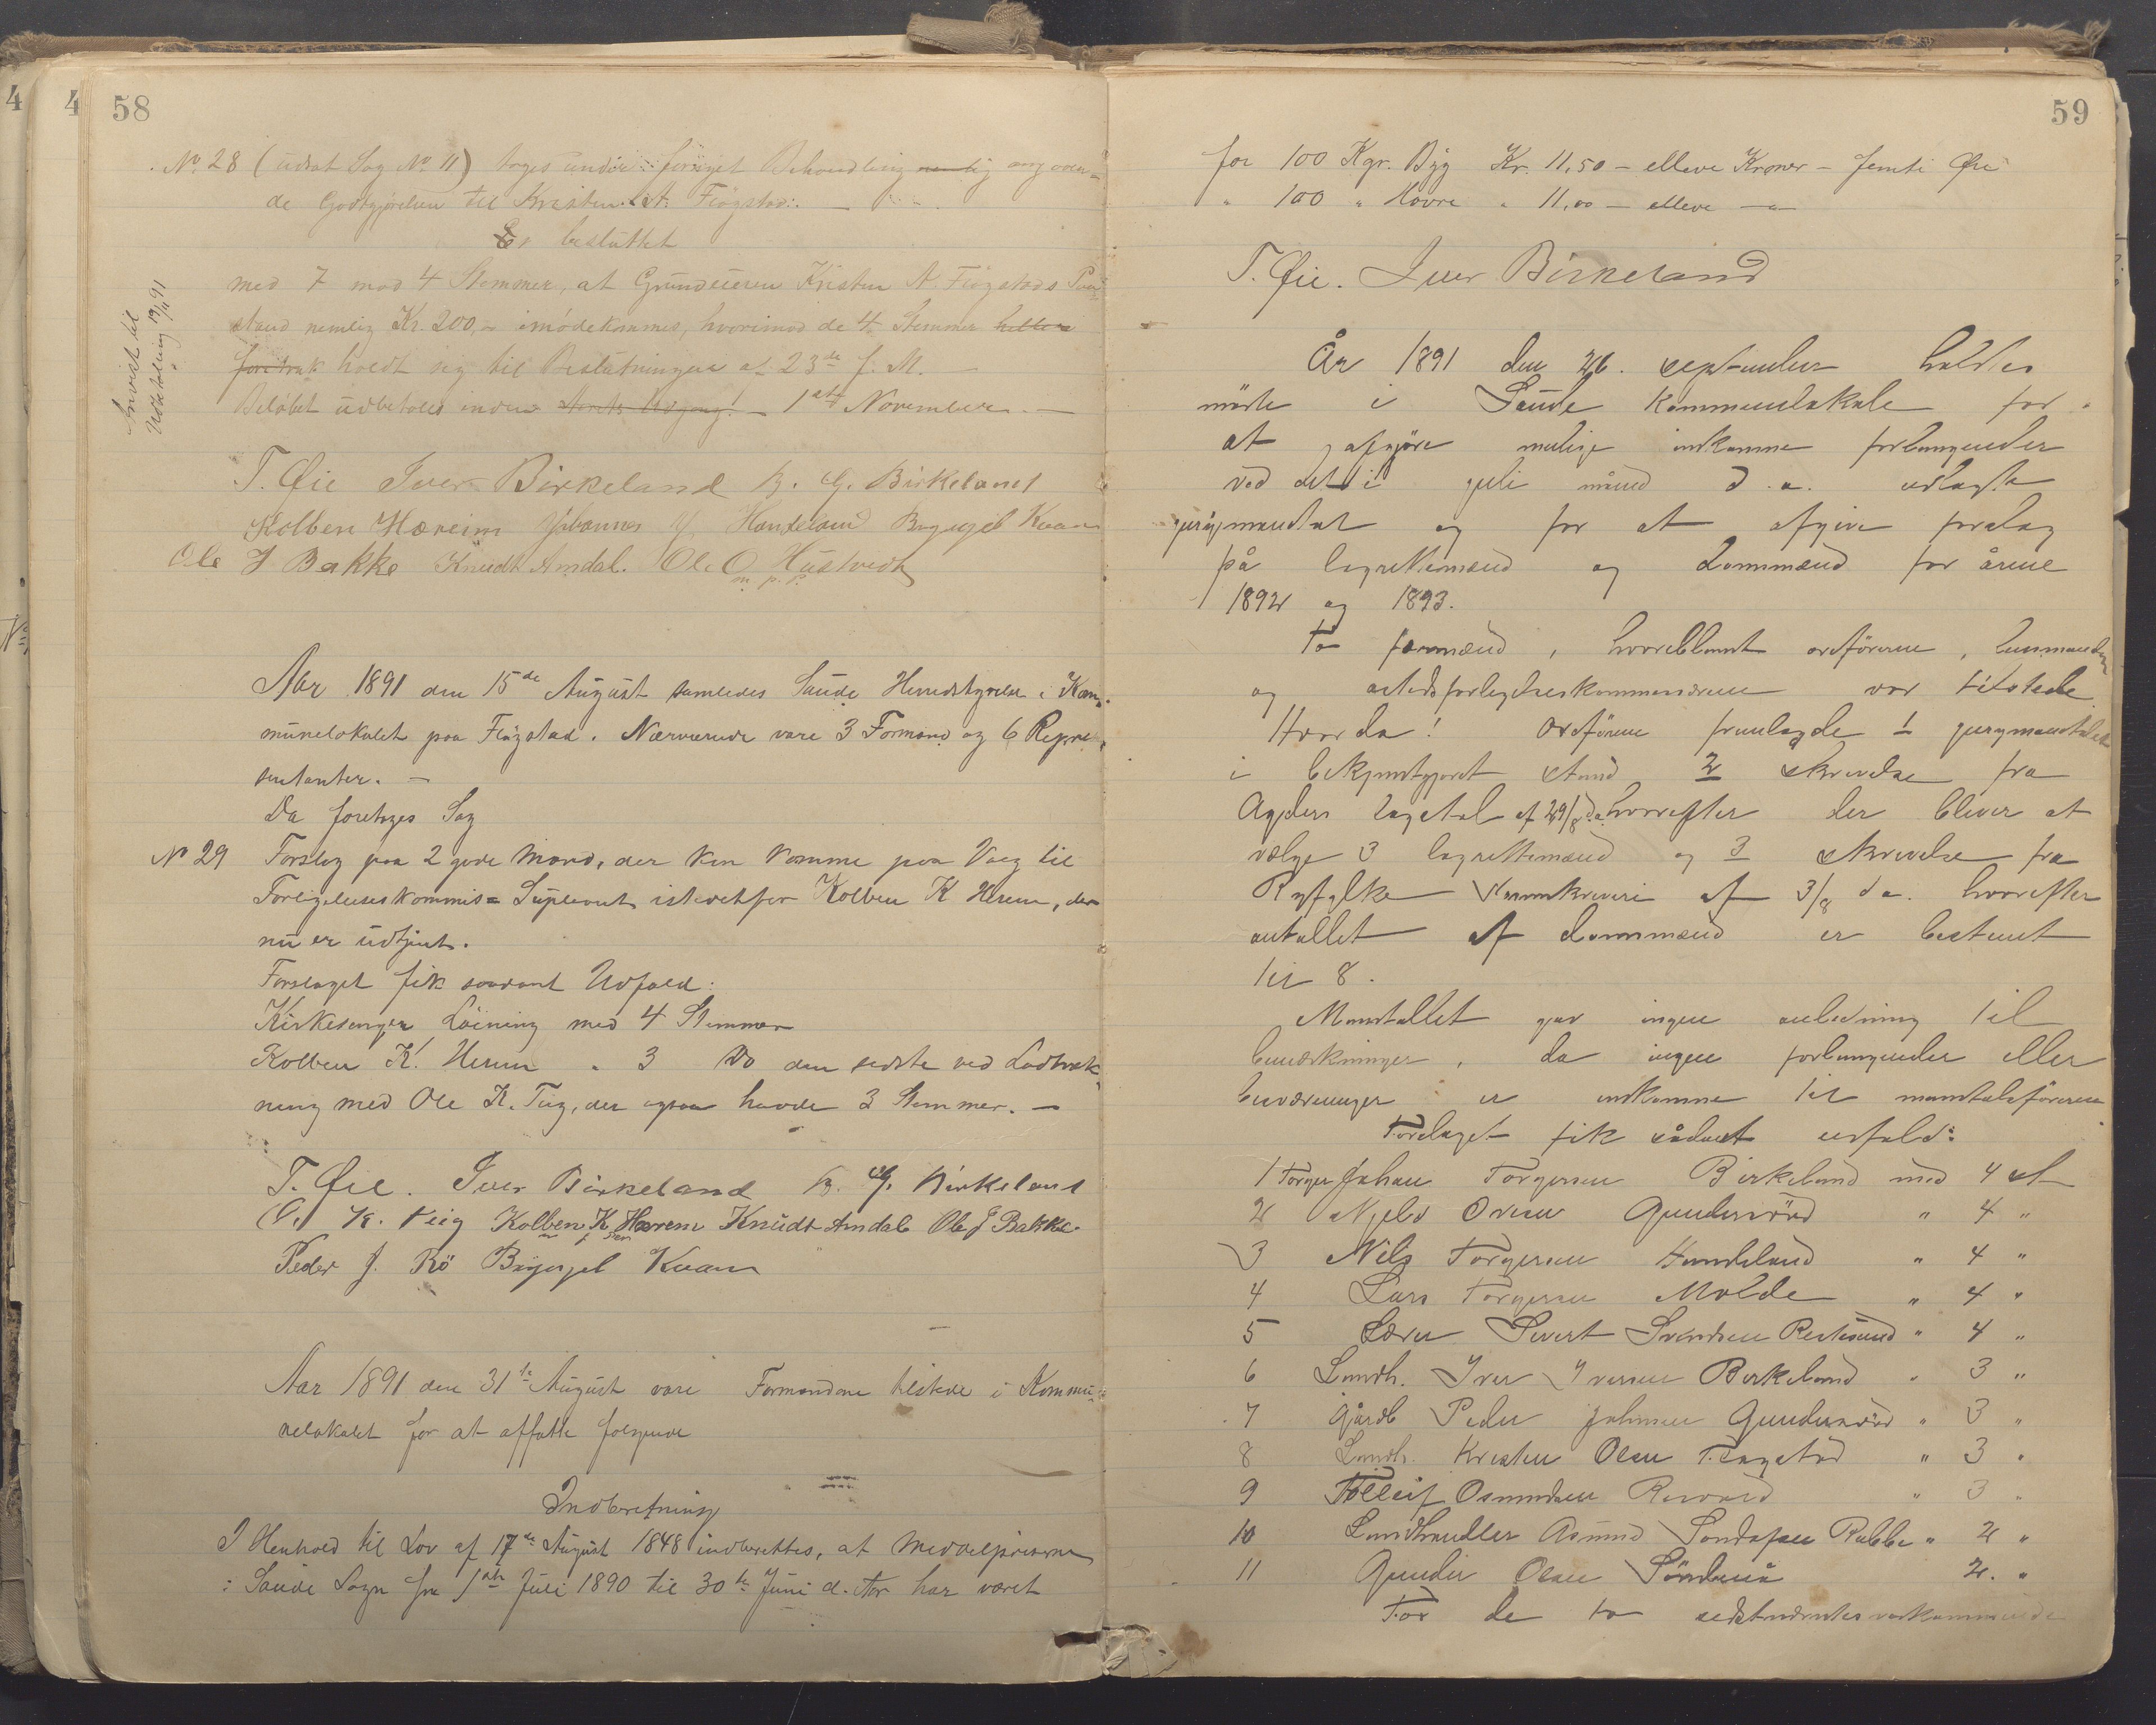 58
No 28 (udsat Sag No 11) toges under fornyet Behandling nemlig angaaen-
de Godtgjørelsen til Kristen A. Fløgstad. —
Er besluttet
med 7 mod 4 Stemmer, at Grundeieren Kristen A. Fløgstads Paa-
stand nemlig Kr. 200,- imødekommes, hvorimod de 4 Stemmer hellere
foretrak holdt sig til Beslutningen af 23de f. M. —
Beløbet udbetales inden Aarets Udgang. — 1ste November. —
Anvist til
Udbetaling 19/11 91
T. Øie Iver Birkeland B. G. Birkeland
Kolben Hæreim Johannes J. Handeland Brynjel Kvam
Ole J Bakke Knudt Amdal. Ole O Hustvedt
m. p. P.
Aar 1891 den 15de August samledes Saude Herredstyrelse i Kom-
munelokalet paa Fløgstad. Nærværende vare 3 Formænd og 6 Repræ-
sentanter. —
Da foretoges Sag
No 29 Forslag paa 2 gode Mænd, der kan komme paa Valg til
Forligelseskommis= Supleant istedetfor Kolben K Herem, der
nu er udtjent.
Forslaget fik saadant Udfald:
Kirkesanger Løining med 4 Stemmer
Kolben K. Herem " 3 Do den sidste ved Lodtræk-
ning med Ole K. Teig, der ogsaa havde 3 Stemmer. —
T. Øie. Iver Birkeland B. G. Birkeland
O. K. Teig Kolben K Hærem Knudt Amdal Ole J Bakke.
Peder J. Rö Brynjel Kvam
Aar 1891 den 31te August vare Formændene tilstede i Kommu-
nelokalet for at affatte følgende
Indberetning
I Henhold til Lov af 17de August 1848 indberettes, at Middelpriserne
i Saude Sogn fra 1ste Juli 1890 til 30te Juni d. Aar har været
59
for 100 Kgr. Byg Kr. 11,50 — elleve Kroner — femti Øre
" 100 " Havre " 11,00 — elleve — " —
T. Øie. Iver Birkeland
År 1891 den 26. september holdtes
møde i Saude kommunelokale for
at afgjöre mulige indkomne forlangender
ved det i juli måned d. a. udlagte
jurymandtal og for at afgive forslag
på lagrettemænd og domsmænd for årene
1892 og 1893.
To formænd, hvoriblandt ordföreren, lensmanden
og forligelseskommissærene var tilstede
Hvorda! Ordförene fremlagde 1 jurymandtallet
i bekjentgjoret stand 2 skrivelse fra
Agders lagstol af 29/8 d.a. hvorefter der bliver at
vælge 3 lagrettemænd og 3 skrivelse fra
Ryfylke sorenskriveri af 3/8 d a. hvorefter
antallet af domsmænd er bestemt
til 8.
Manntallet gav ingen anledning til
bemærkninger, da ingen forlangender eller
besværinger er indkomne til mandtalsföreren
Forslaget fik sådant udfald:
1 Torger Johan Torgersen Birkeland med 4 st
2 Njeld Orsen Gundersvöd " 4 "
3 Nils Torgersen Handeland " 4 "
4 Lars Torgersen Molde " 4 "
5 Lærer Sivert Svendsen " 4 "
6 Landh. Iver Iversen Birkeland " 3 "
7 Gårdb Peder Johnsen Gundersvöd " 3 "
8 Landh. Kristen Olsen Fløgstad " 3 "
9 Tolleif Osmundsen " 3 "
10 Landhandler Asmund Rabbe " 2 "
11 Gunder Olsen Söndenå 2. "
For de to sidstnævntes vedkommende